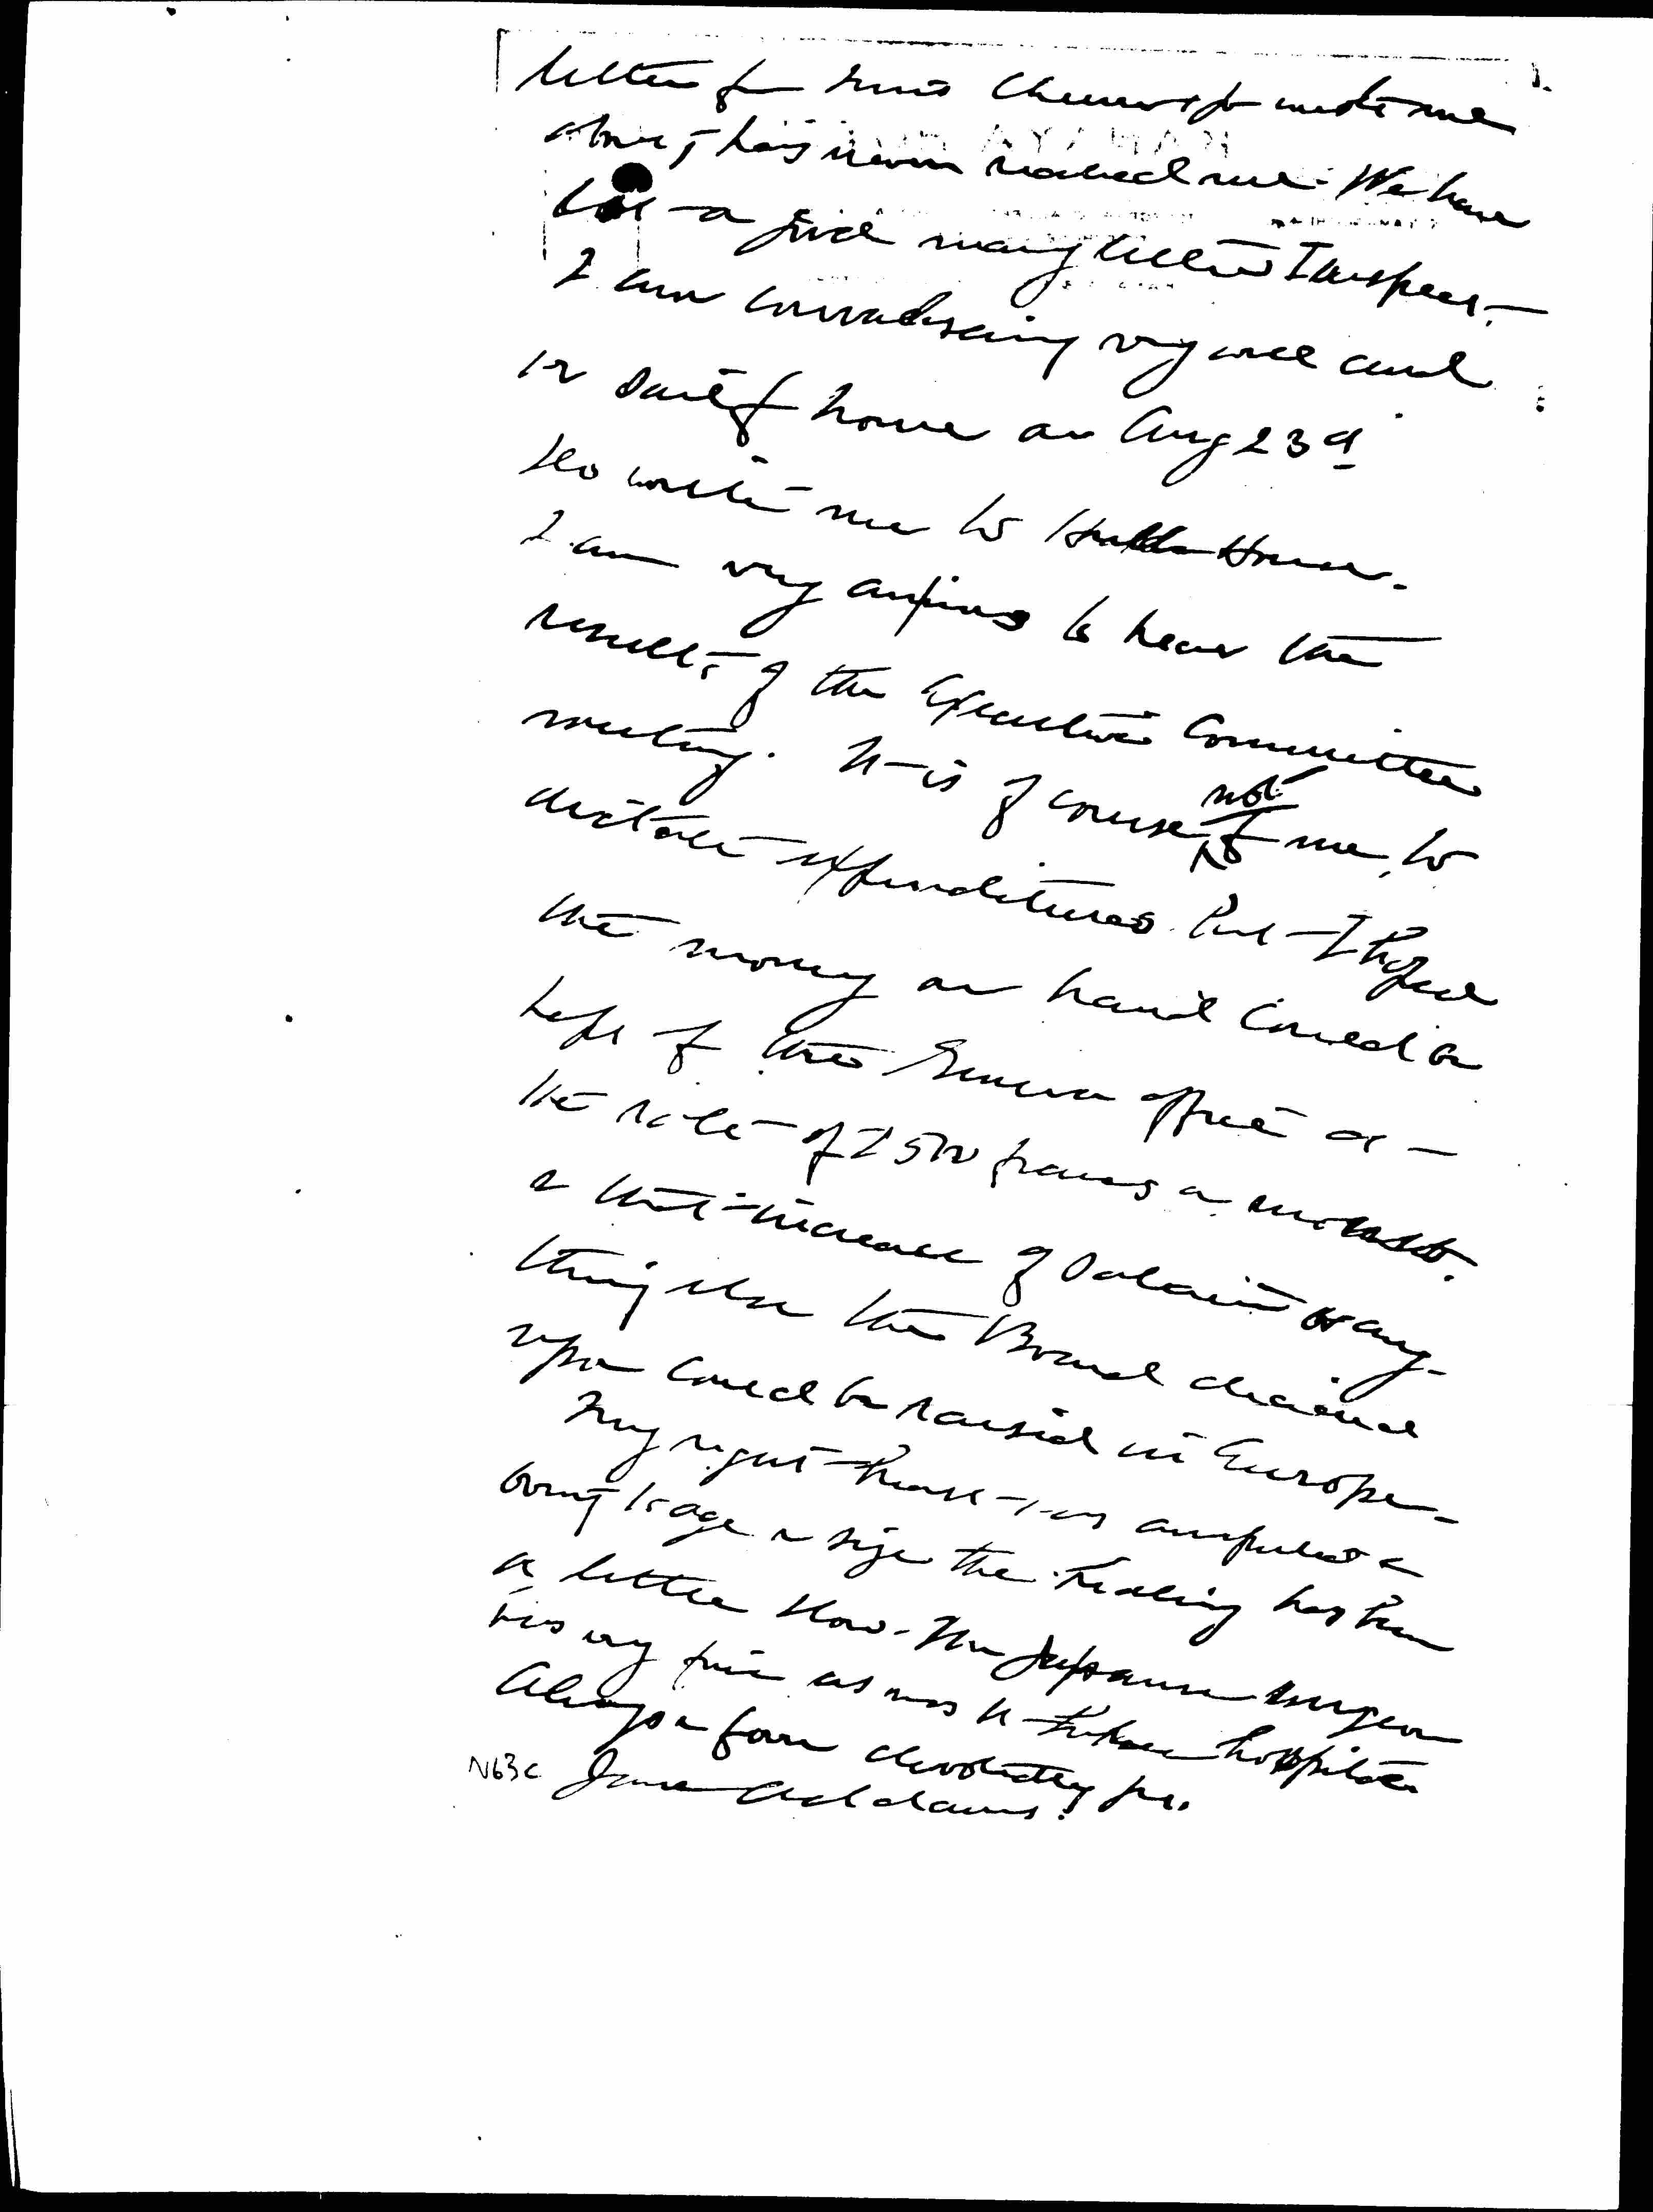 letter from Miss Chevenix you write me
about, has never reached me. We have
lost a good many letters I suspect.
I am convalescing very well and
we sail for home on Aug 23d
so write me to Hull-House.
I am very anxious to hear the
results of the Executive Committee
meeting. It is of course not for me to
dictate expenditures but I hoped
the money on hand could be
kept for the Geneva office at
the rate of 2500 francs a month.
& that increase of salaries or any-
thing else the Board decided
upon could be raised in Europe.
My right breast was amputated &
owing to age & size the healing has been
a little slow. The Japanese surgeon
was very fine as was the hospital
Always yours devotedly
N63c Jane Addams.